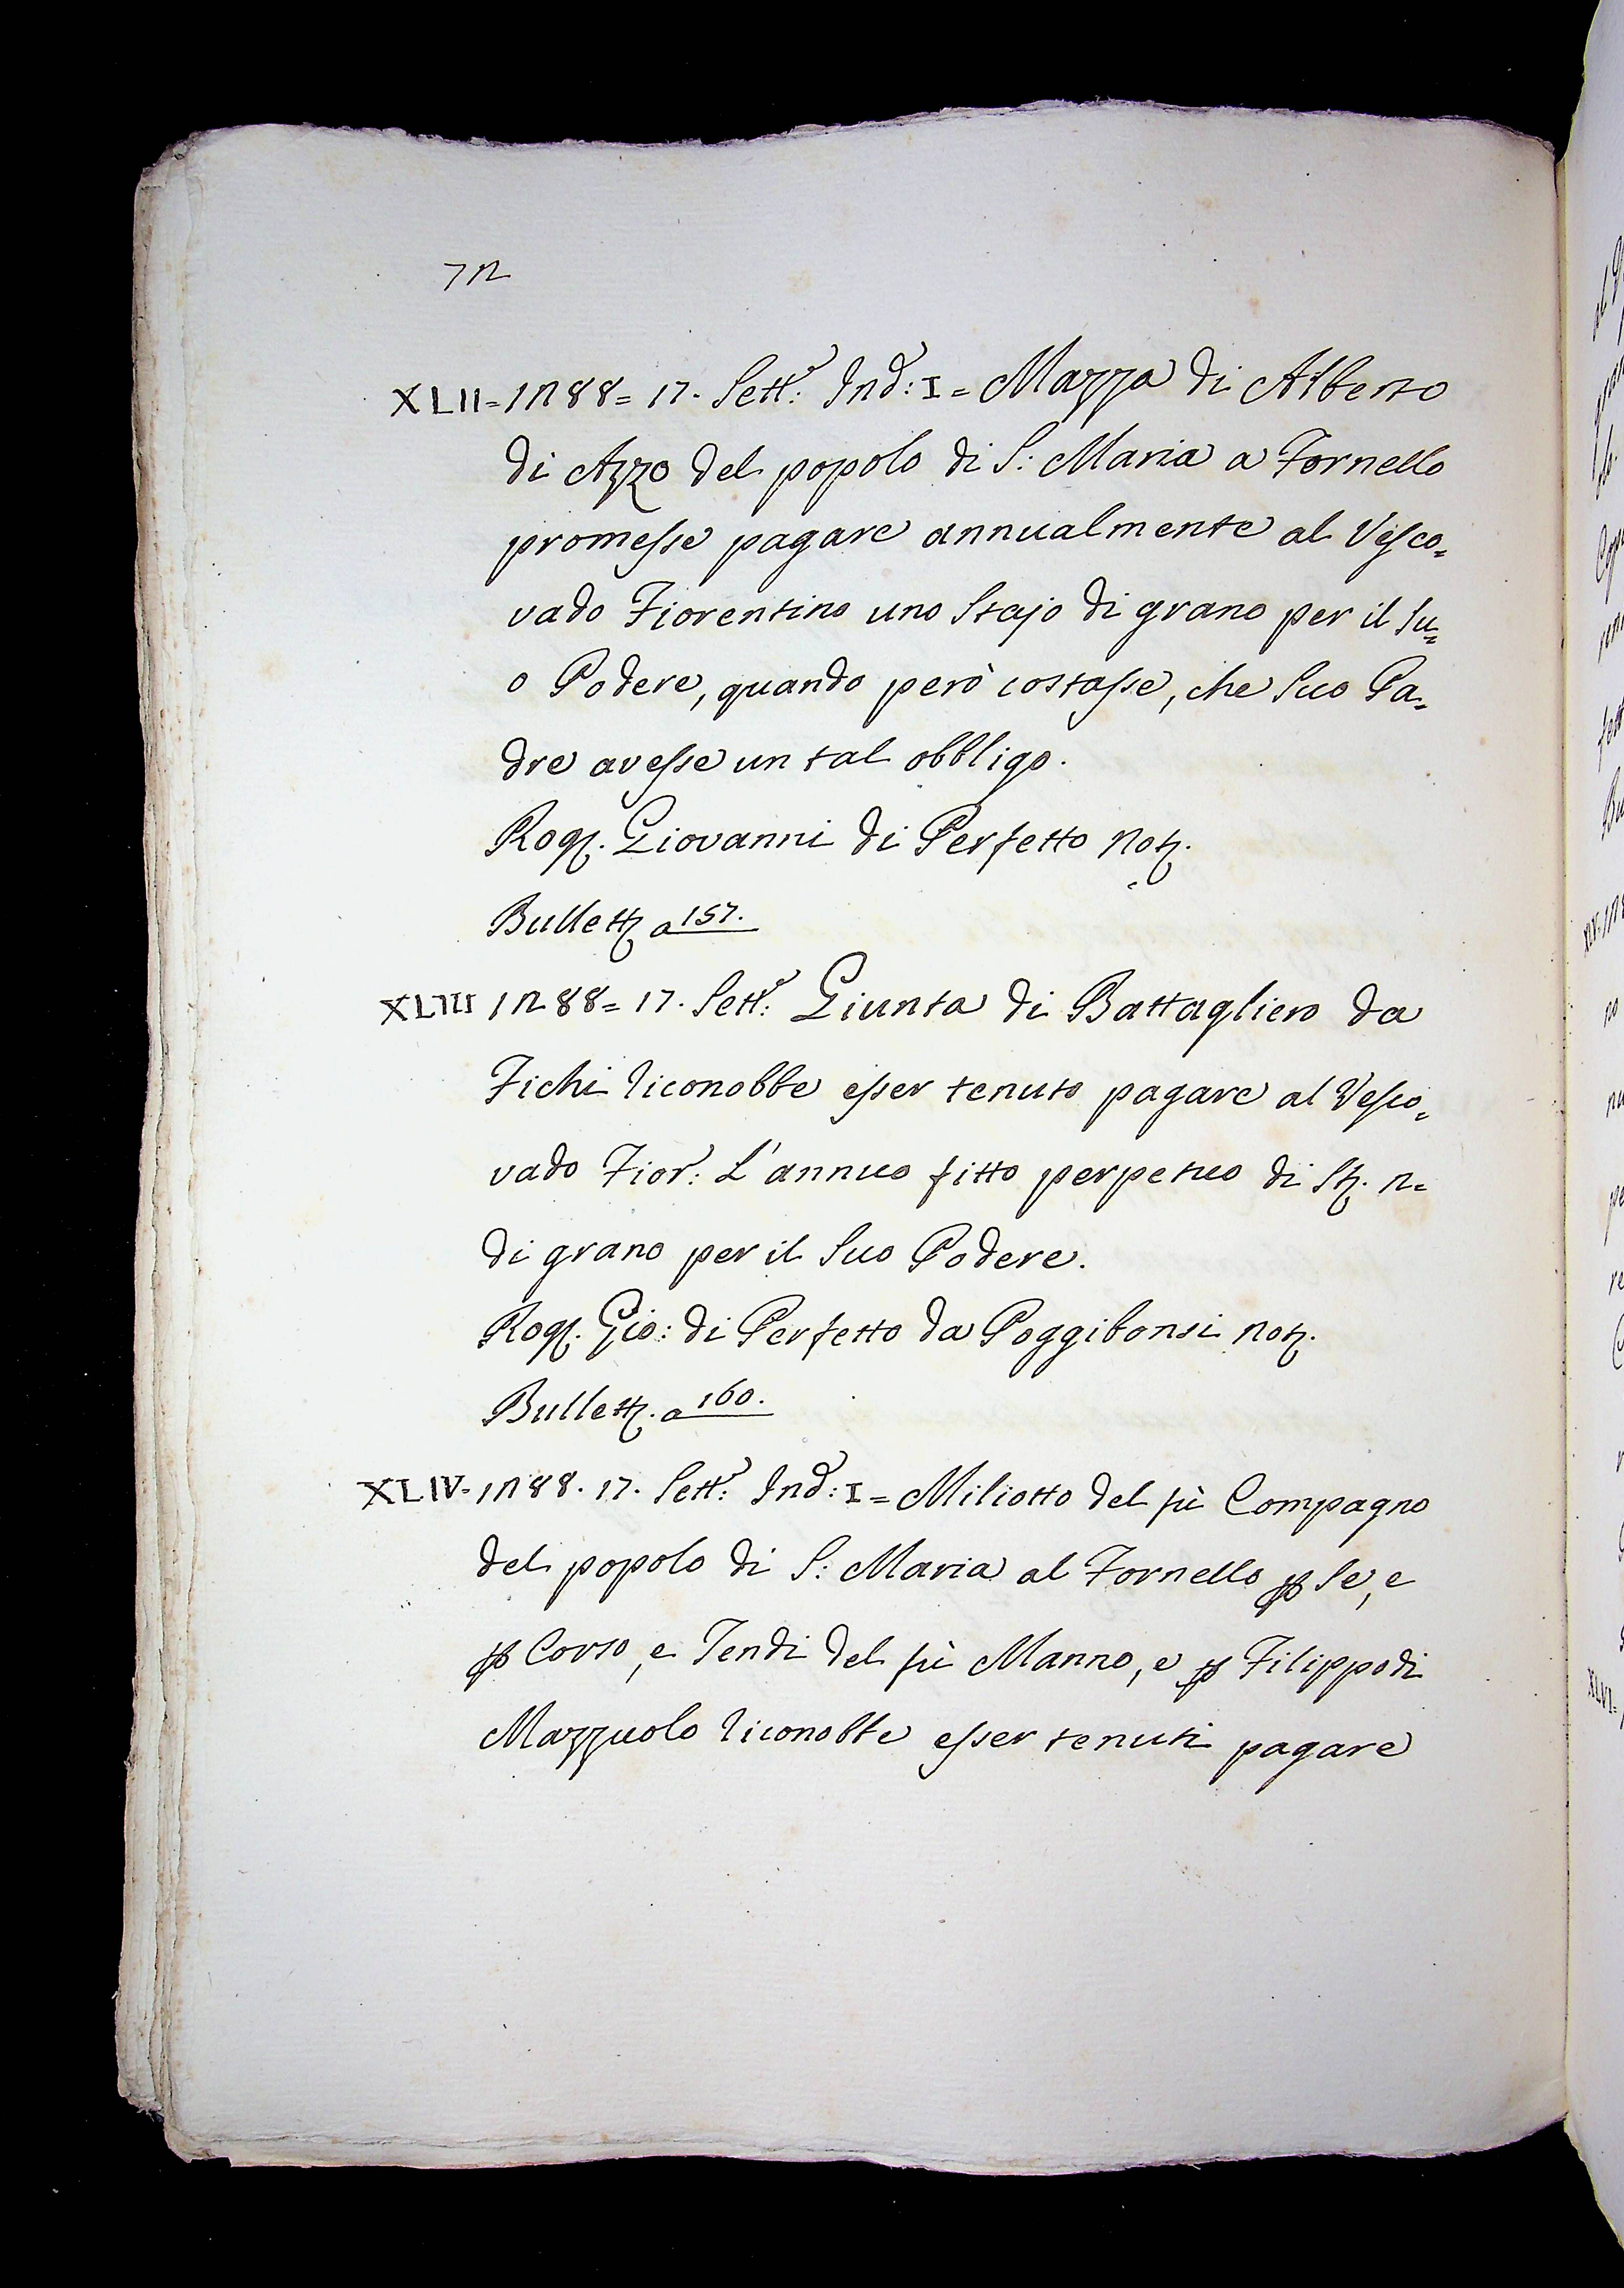 72
XLII = 1288 = 17. Sett.: Ind: I = Mazza di Alberto
di Azzo del popolo di S: Maria a Fornello
promesse pagare annualmente al Vesco=
vado Fiorentino uno Stajo di grano per il Su=
o Podere, quando però costasse, che Suo Pa=
dre avesse un tal obbligo.
Rog. Giovanni di Perfetto Not.
Bullett. a 157.
XLIII 1288 = 17. Sett: Giunta di Battagliero da
Fichi riconobbe esser tenuto pagare al Vesco=
vado Fior: L'annuo fitto perpetuo di St. 2=
di grano per il Suo Podere.
Rog. Gio: di Perfetto da Poggibonsi Not.
Bullett. a 160.
XLIV = 1288. 17. Sett: Ind: I = Miliotto del fù Compagno
del popolo di S: Maria al Fornello p Se, e
p Corso, e Tendi del fù Manno, e p Filippo di
Mazzuolo riconobbe esser tenuti pagare